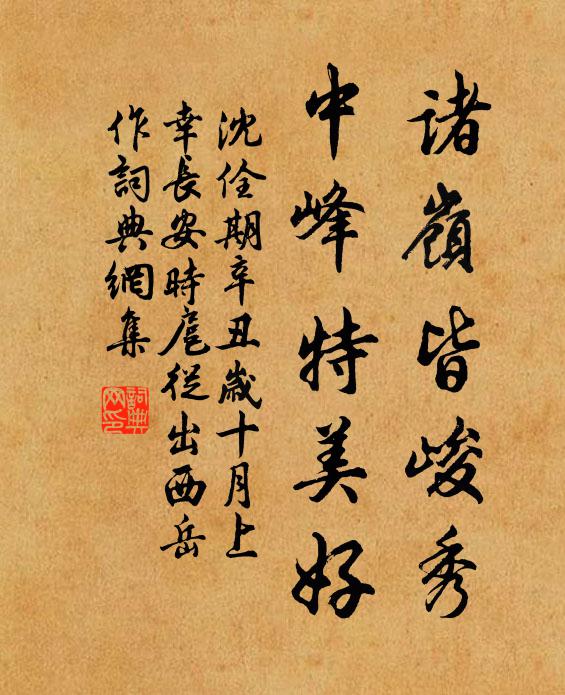 諸嶺皆峻秀
中峰特美好
沈佺期辛丑歲十月上
幸長安時扈從出西岳
作詞典網集
詞典
网印